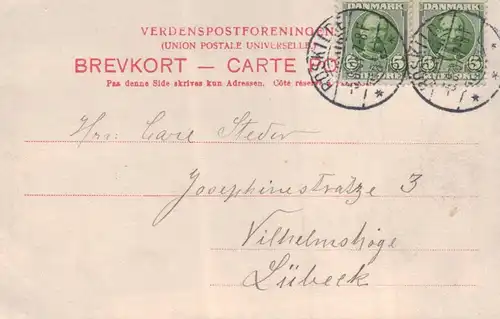 VERDENSPOSTFORENINGEN
(UNION POSTALE UNIVERSELLE
BREVKORT — CARTE PO
Paa denne Side skrives kun Adressen. Côté rése
DANMARK
5 5
DANMARK
5 5
Hrr. Carl Steder
Josephinestratze 3
Vilhelmshöge
Lübeck